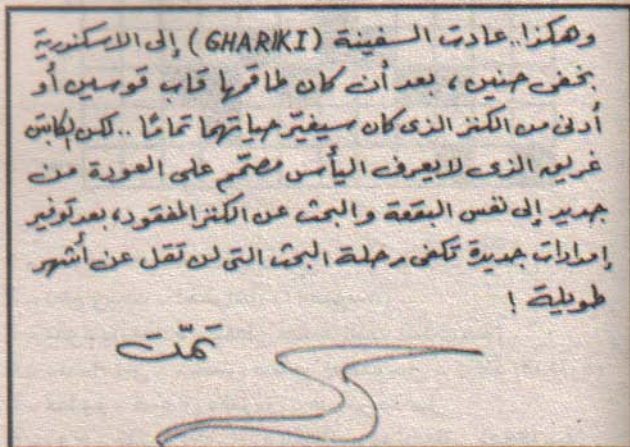 وهكذا.. عادت السفينة (GHARIKI) إلى الاسكندرية
بخفى حنين، بعد أن كان طاقمها قاب قوسين أو
أدنى من الكنز الذى كان سيغيّر حياتهما تمامًا.. لكن الكابتن
غريق الذى لا يعرف اليأس مصمّم على العودة من
جديد إلى نفس البقعة والبحث عن الكنز المفقود، بعد توفير
إمدادات جديدة تكفى مرحلة البحث التى لن تقل عن أشهر
طويلة!
تمّت